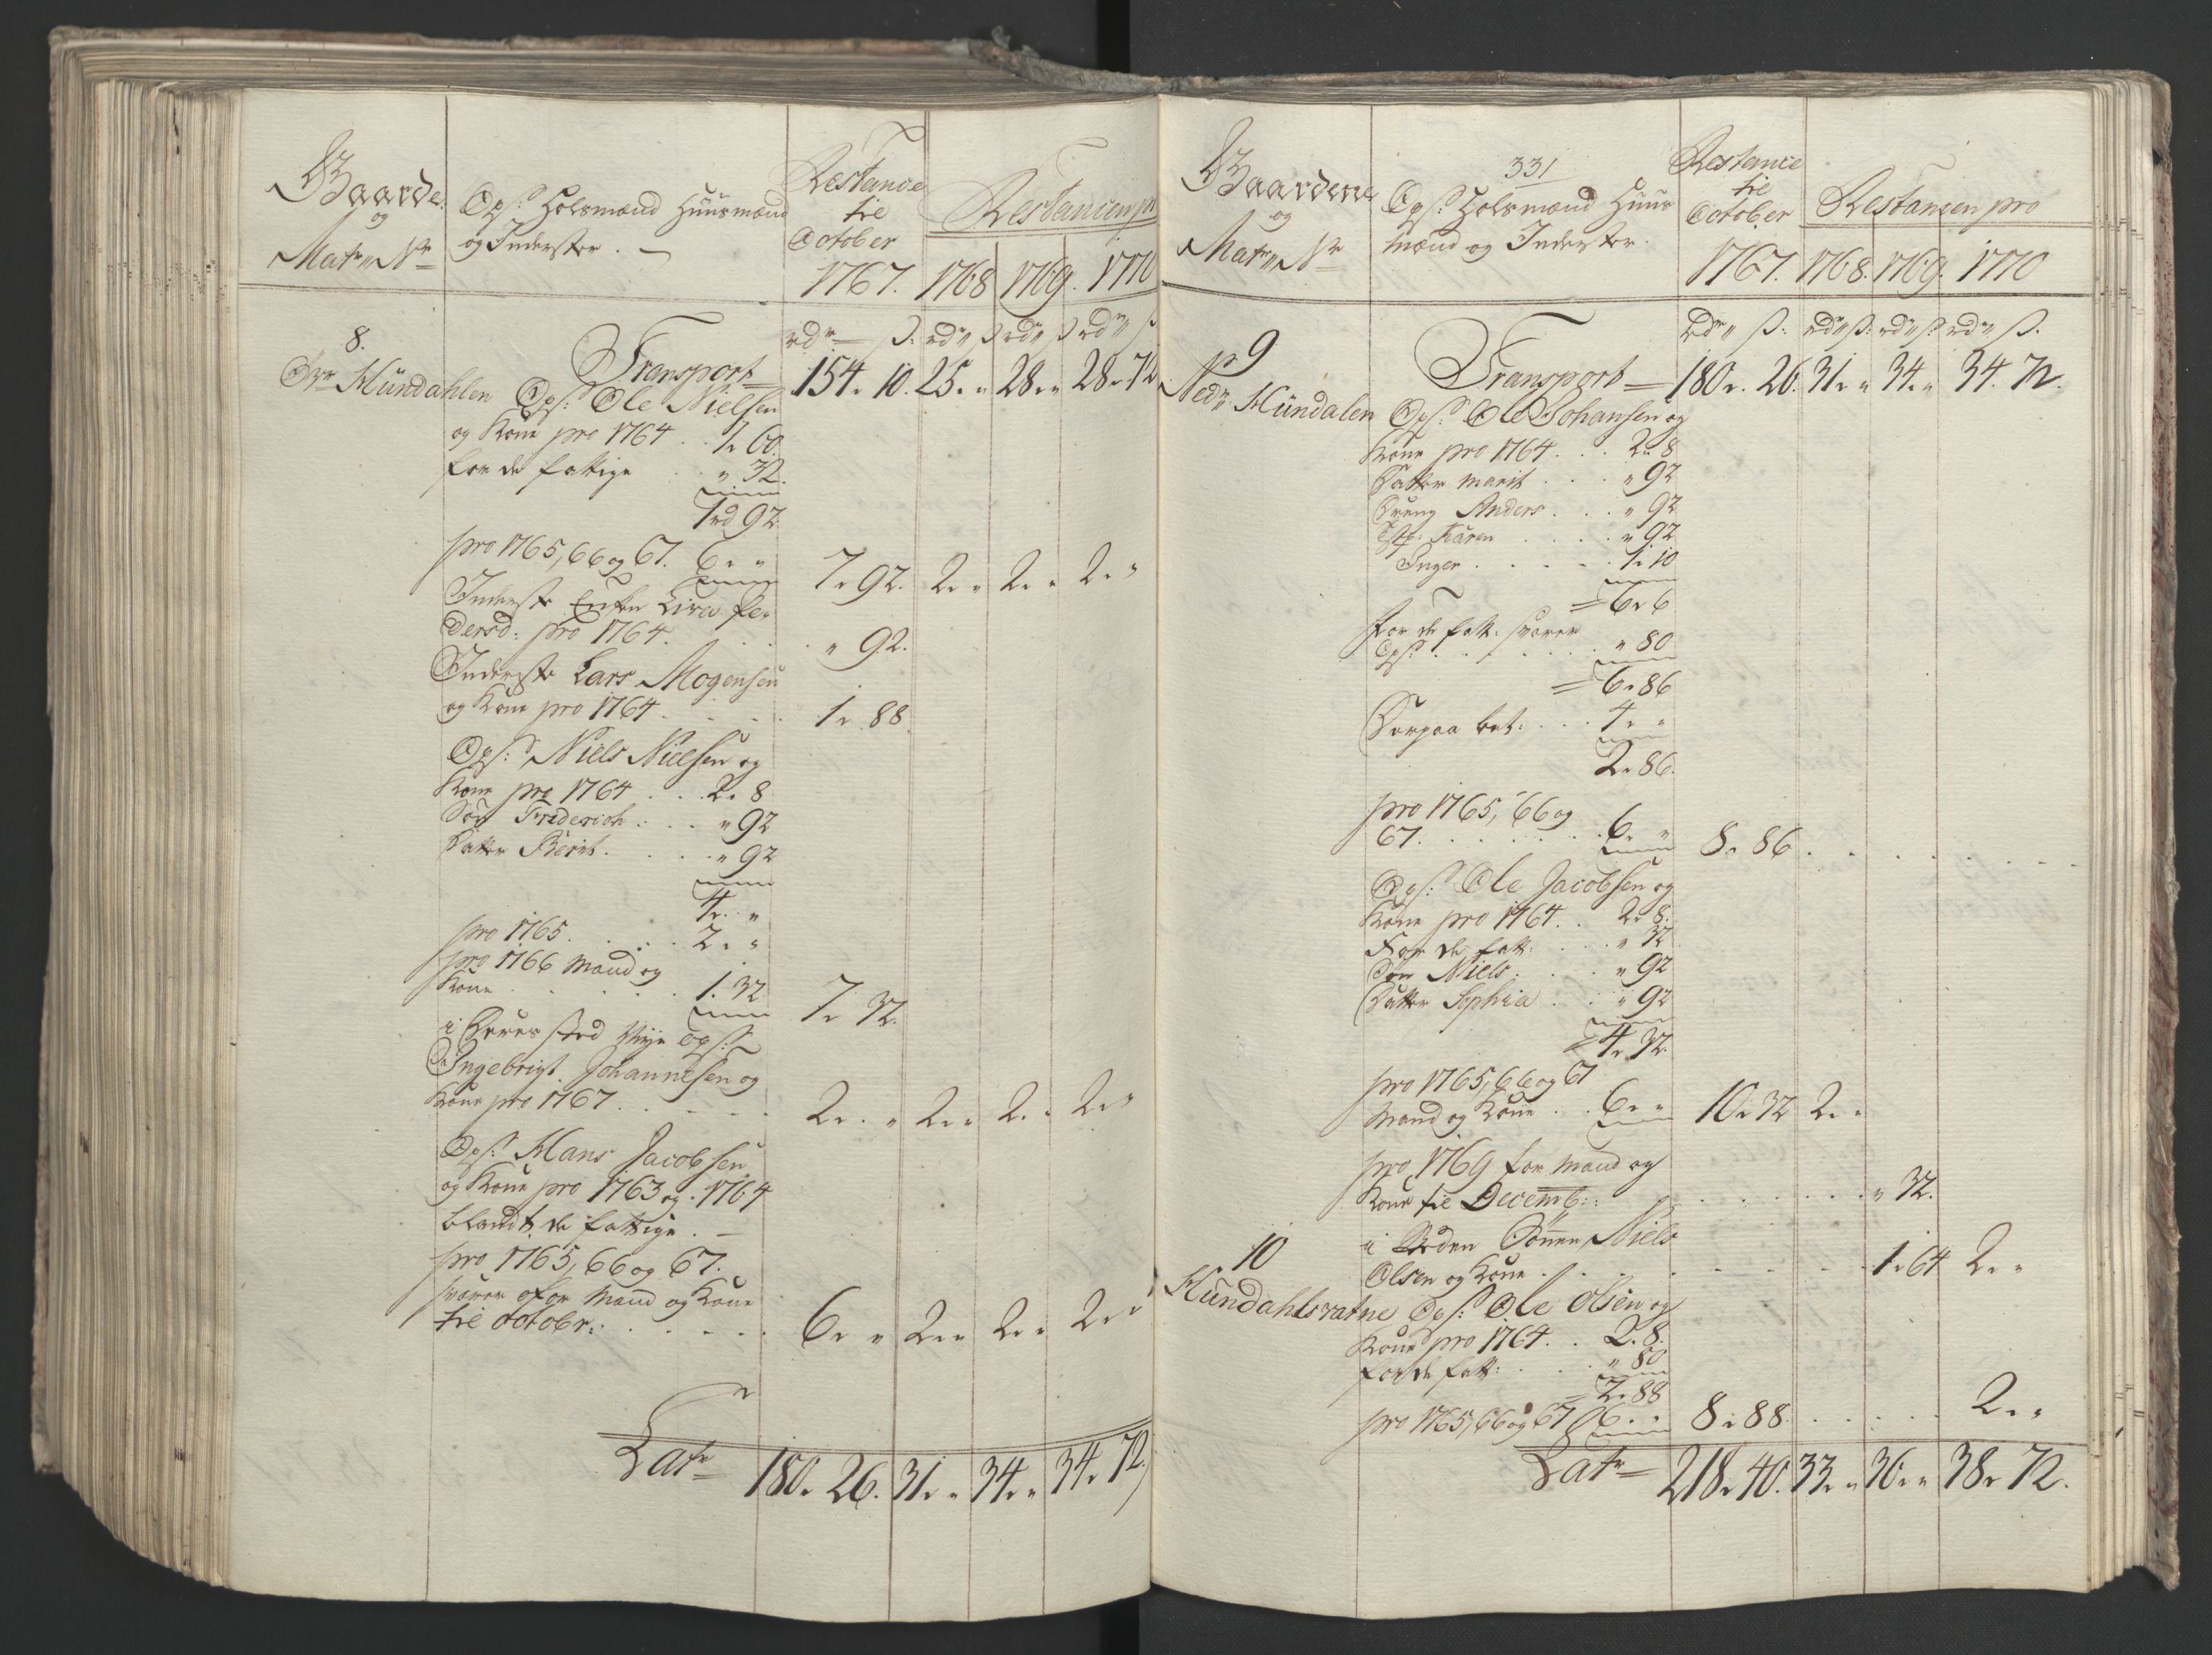 Gaarde
og
Matr„ Nr
Ops: Holsmænd Huusmænd
og Inderster. —
Restance
til
October
1767.
Restancen pro
1768 1769. 1770
rdr — ß. rdr„ ß rdr„ ß rdr„ ß
8.
Transport 154. 10. 25. „ 28. „ 28. 72
Øvr Hündahlen Ops: Ole Nielsen
og Kone pro 1764 . . 1. 60.
for de fattige . . „ 32.
1rd 92
pro 1765, 66 og 67. 6. „ 7. 92. 2. „ 2. „ 2. „
Inderste Enken Pe-
dersd: pro 1764. . . . „ 92.
Inderste Lars Mogensen
og Kone pro 1764 . . . . 1. 88.
Ops: Niels Nielsen og
Kone pro 1764 . . . 2. 8
Søn Friderich . . . „ 92
Datter Berit . . . . „ 92
4. „
pro 1765 . . . . . 2. „
pro 1766 Mand og
Kone . . . . . 1. 32 7. 32.
i Deres sted Nye ops:
Ingebrigt Johannesen og
Kone pro 1767 . . . . . 2. „ 2. „ 2. „ 2. „
Ops: Hans Jacobsen
og Kone pro 1763 og 1764
blandt de fattige . —
pro 1765, 66 og 67.
svarer Mand og Kone
til octobr: . . . . . 6. „ 2. „ 2. „ 2. „
Latr 180. 26. 31. „ 34. „ 34. 72.
331
Gaardene
og
Matr„ Nr
Ops: Holsmænd Huus
mænd og Inderster.
Restance
til
October
1767.
Restancen pro
1768. 1769. 1770
Rdr„ ß. rdr„ ß. rdr„ ß rdr„ ß.
9
Transport 180. 26. 31. „ 34. „ 34. 72.
Nedr Hündalen Ops: Ole Johansen og
Kone pro 1764 . . . 2. 8
Datter Marit . . . „ 92
Dreng Anders . . . „ 92
Karen . . . . „ 92
Inger . . . . . 1. 10
= 6. 6
For de fatt: svarer
Ops: . . . . . . „ 80
= 6. 86
Derpaa bet: . . . 4. „
2. 86.
pro 1765, 66 og
67. . . . . . . 6. „ 8. 86 . . . . . . .
Ops: Ole Jacobsen og
Kone pro 1764. . 2. 8.
For de fatt: . . . „ 32
Søn Niels . . . „ 92
Datter Sophia . . „ 92
4. 32.
pro 1765, 66 og 67
Mand og Kone . . 6. „ 10. 32 2. „
pro 1769 for Mand og
Kone til Decemb: . . . . . . . „ 32.
i Steden Sønnen Niels
Olsen og Kone . . . . . . . . 1. 64 2. „
10
Hündahlsvatne Ops: Ole Olsen og
Kone pro 1764 . . 2. 8.
for de fatt: . . . „ 80
= 2. 88
pro 1765, 66 og 67 6. „ 8. 88. . . . . . 2. „
Latr 218. 40. 33. „ 36. „ 38. 72.